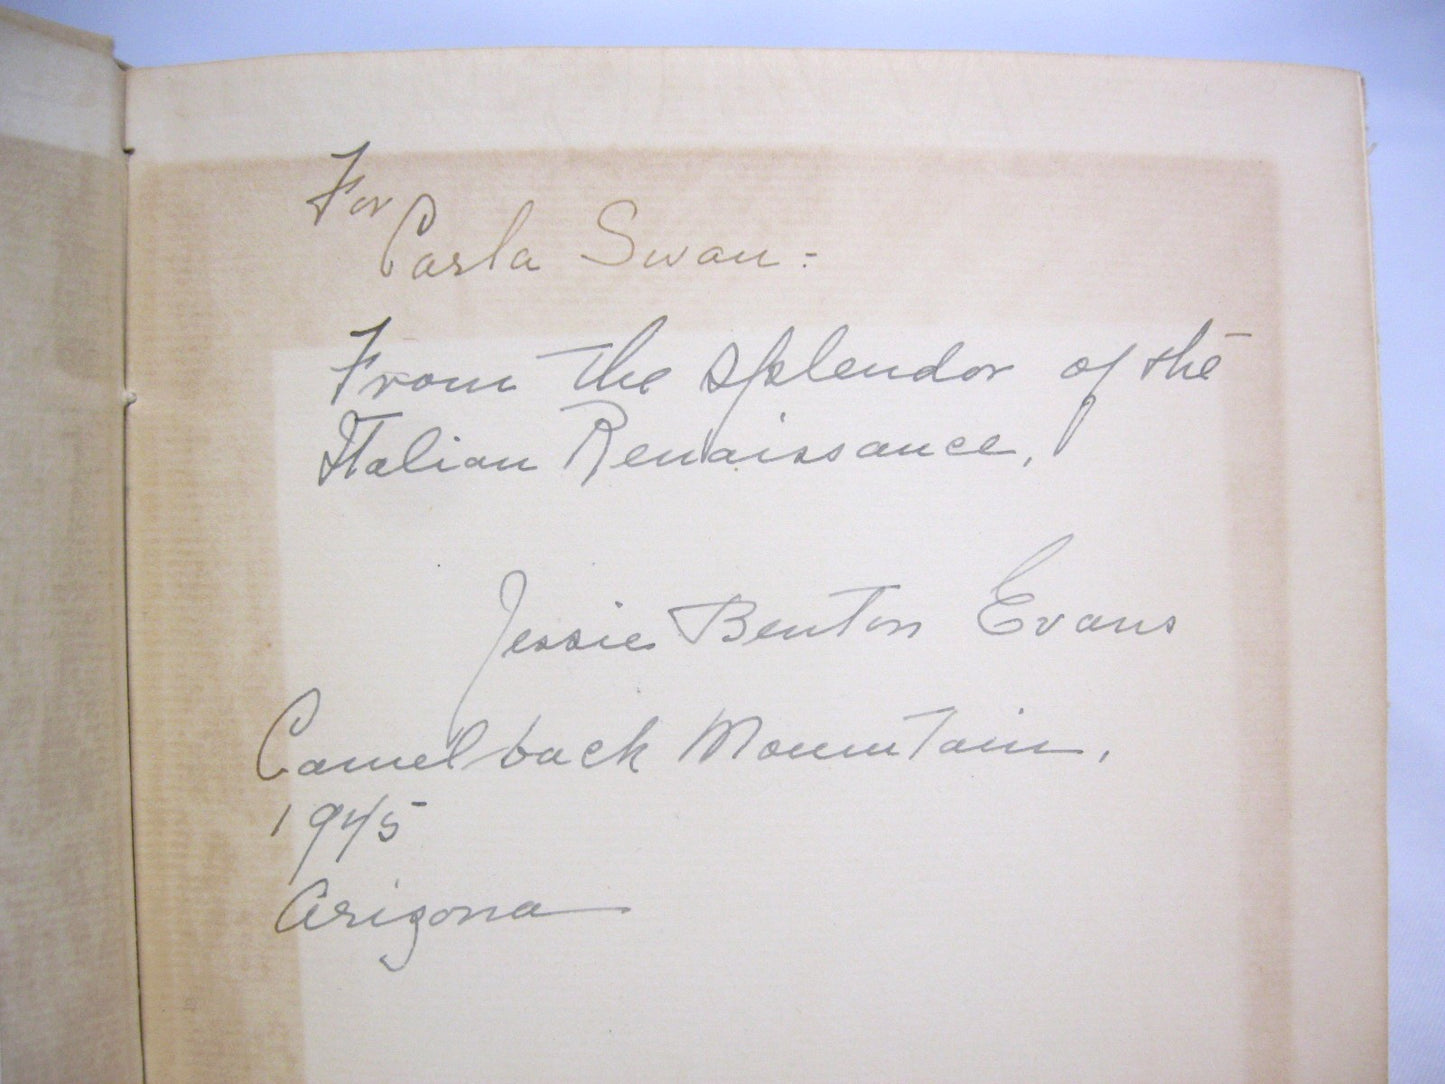 For
Carla Swan:
From the splendor of the
Italian Renaissance,
Jessie Benton Evans
Camelback Mountain,
1945
Arizona